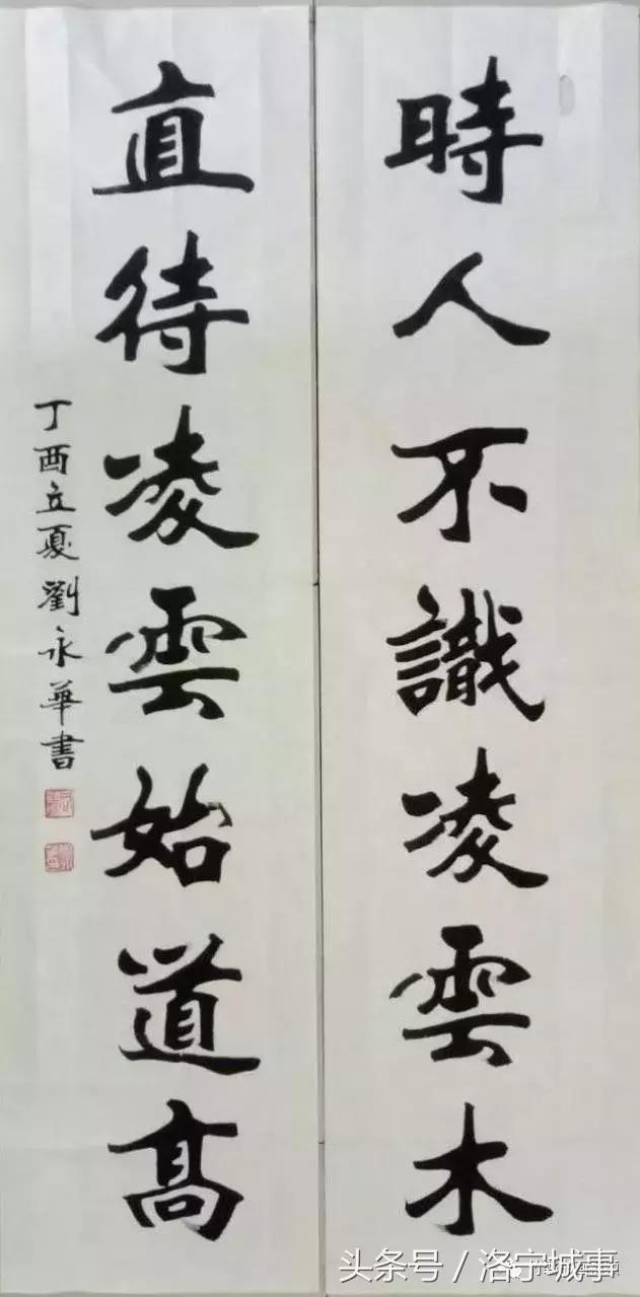 時人不識凌雲木
直待凌雲始道高
丁酉立夏劉永華書
头条号／洛宁城事